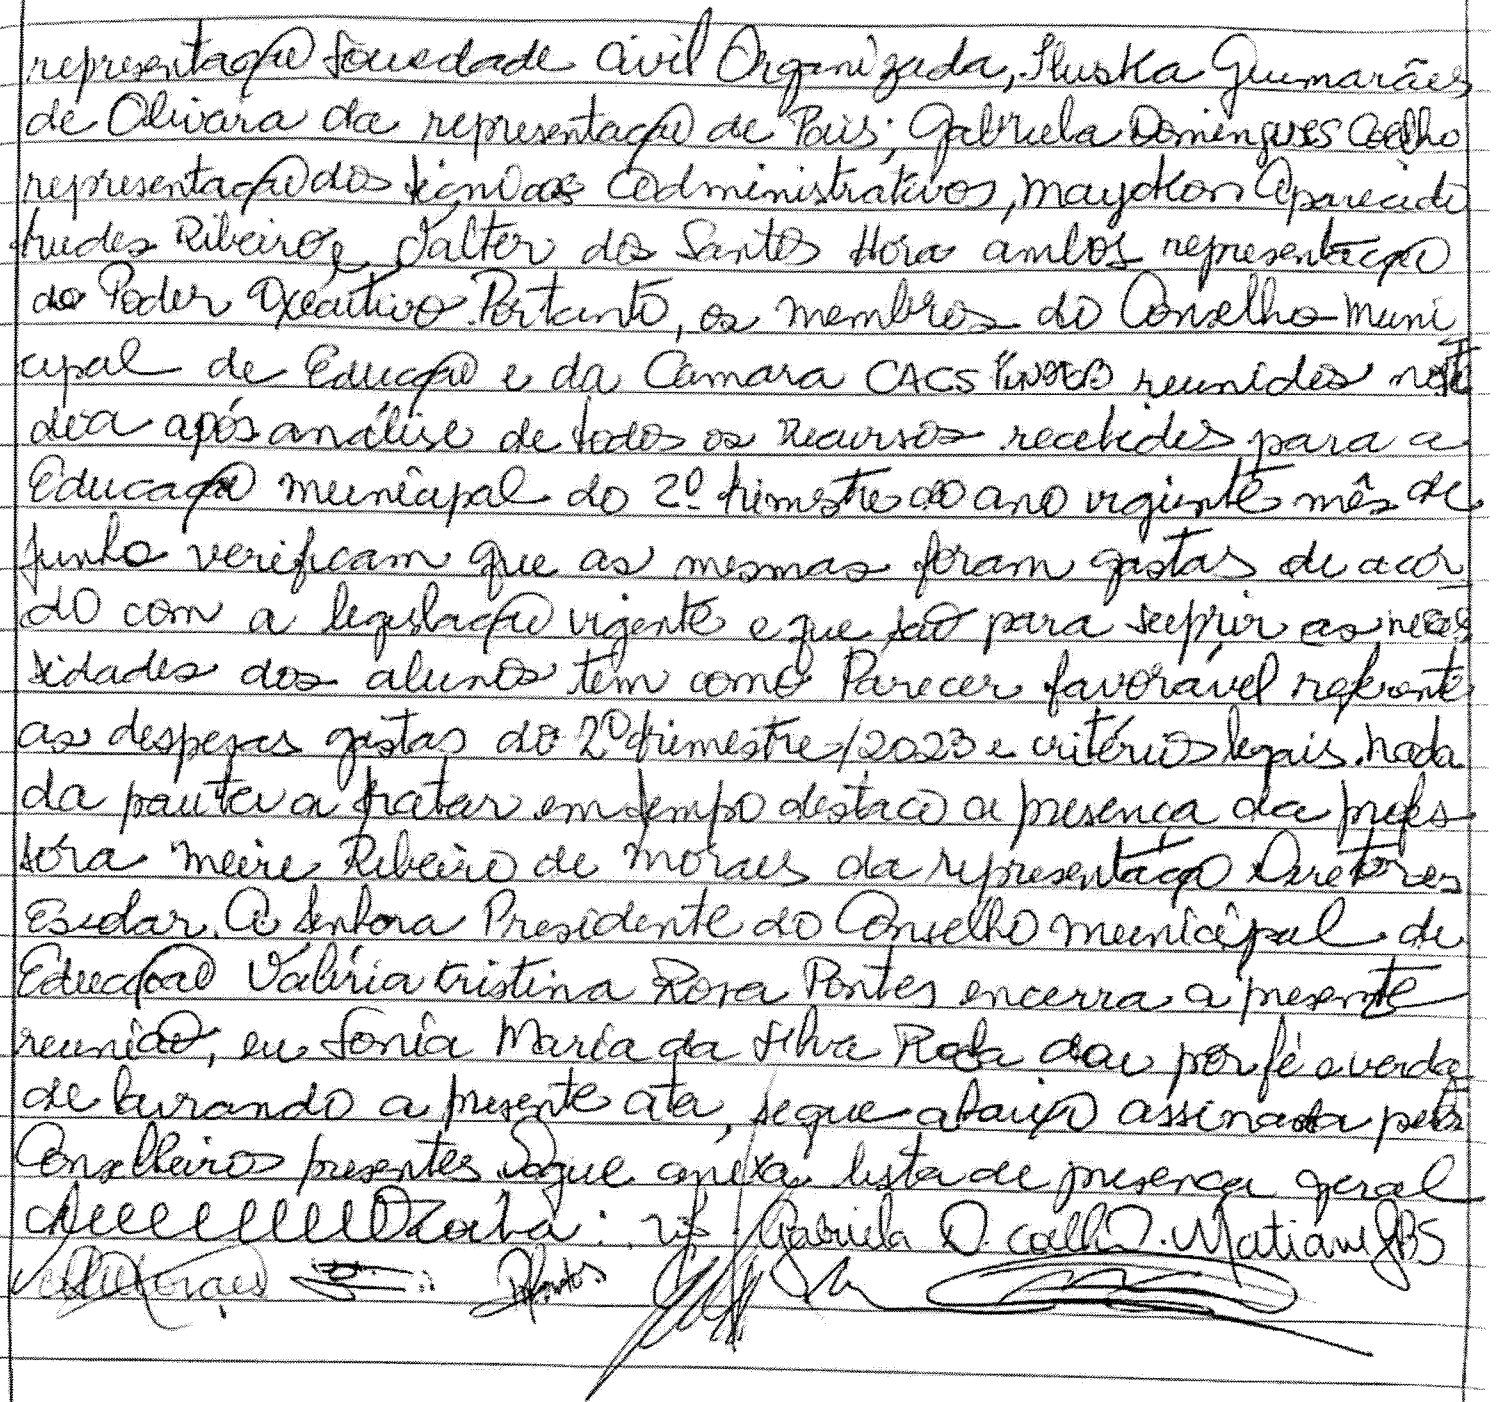 representação Sociedade Civil Organizada, Iluska Guimarães
de Olivara da representação de Pais; Gabriela Domingues Coelho
representação dos técnicos Administrativos, Maydkon Aparecido
trudes Ribeiro e Valter dos Santos Hora ambos representação
do Poder Executivo. Portanto, os membros do Conselho Muni
cipal de Educação e da Câmara CACS FUNDEB reunidos neste
dia após análise de todos os recursos recebidos para a
Educação municipal do 2º trimestre do ano vigente mês de
junho verificam que as mesmas foram gastas de acor
do com a legislação vigente e que são para suprir as neces
sidades dos alunos tem como Parecer favorável referente
as despesas gastas do 2º trimestre/2023 e critérios legais. Nada
da pauta a tratar em tempo destaco a presença da profes
sora Meire Ribeiro de Moraes da representação Diretores
Escolar. A Senhora Presidente do Conselho Municipal de
Educação Valéria Cristina Rosa Pontes encerra a presente
reunião, eu Sonia Maria da Silva Rosa dou por fé e verda
de lavrando a presente ata, segue abaixo assinada pelos
Conselheiros presentes Segue anexa lista de presença geral
Gabriela D. Coelho. Matiane JBS